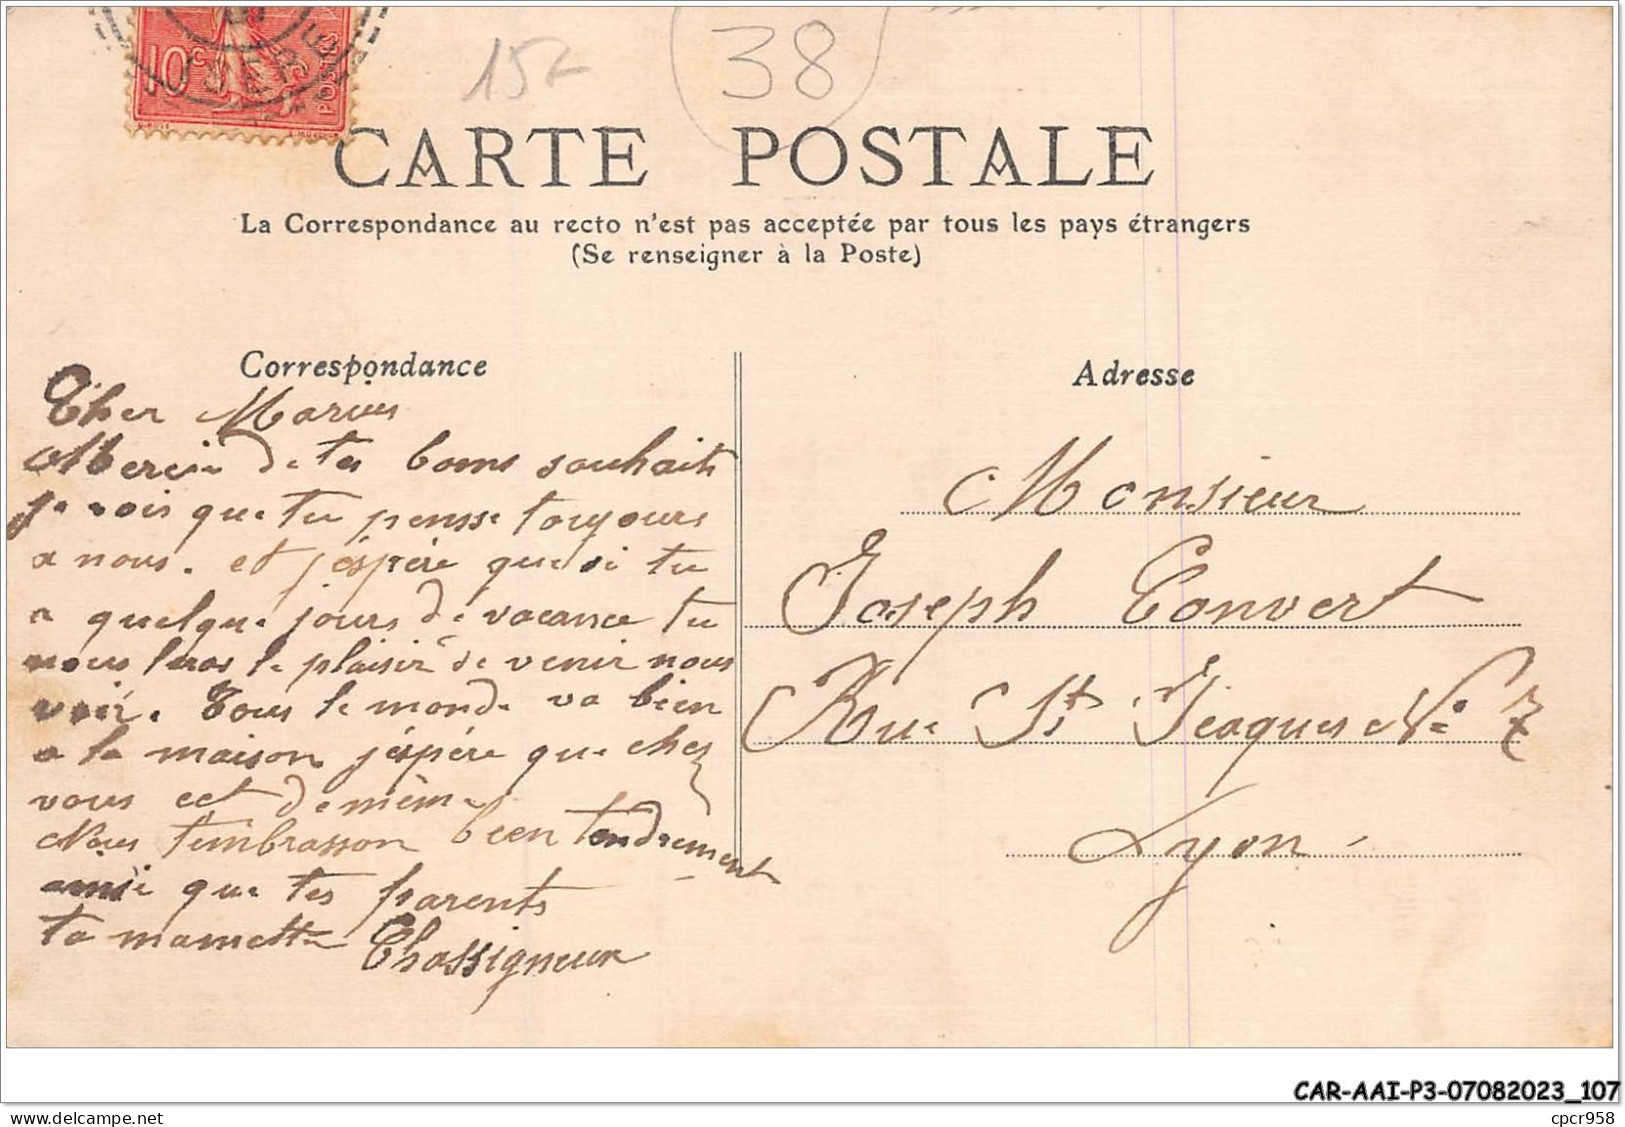 10c
POSTES
15F
38
CARTE POSTALE
La Correspondance au recto n'est pas acceptée par tous les pays étrangers
(Se renseigner à la Poste)
Correspondance
Cher Marius
Merci de tes bons souhaits
je vois que tu pense toujours
a nous. et j'éspére que si tu
a quelque jours de vacance tu
nous feras le plaisir de venir nous
voir. Tous le monde va bien
a la maison j'éspére que chez
vous cet de même
Nous t'embrasson bien tendrement
ainsi que tes parents
ta mamette Chassigneux
Adresse
Monsieur
Joseph Convert
Rue St Jeaques No 7
Lyon
CAR-AAI-P3-07082023_107
www.delcampe.net
cpcr958